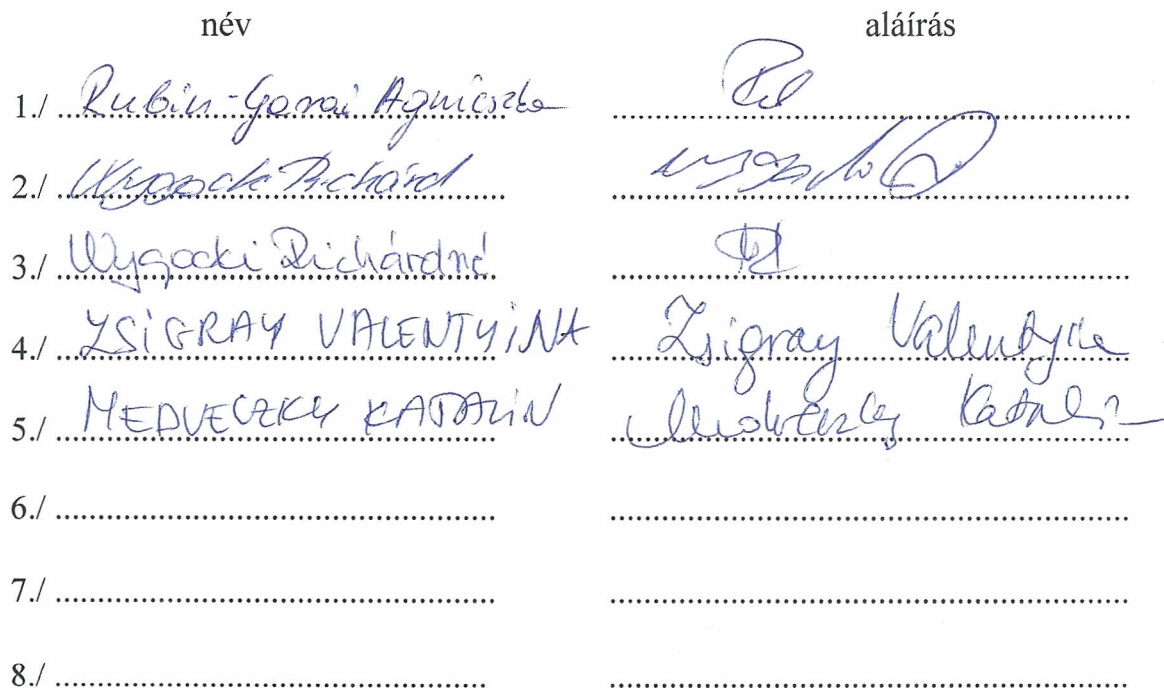 név aláírás
1./ Rubin-Garai Agnieszka
2./ Wygocki Richárd
3./ Wygocki Richárdné
4./ ZSIGRAY VALENTYINA Zsigray Valentyina
5./ MEDVECZKY KATALIN Medveczky Katalin
6./
7./
8./